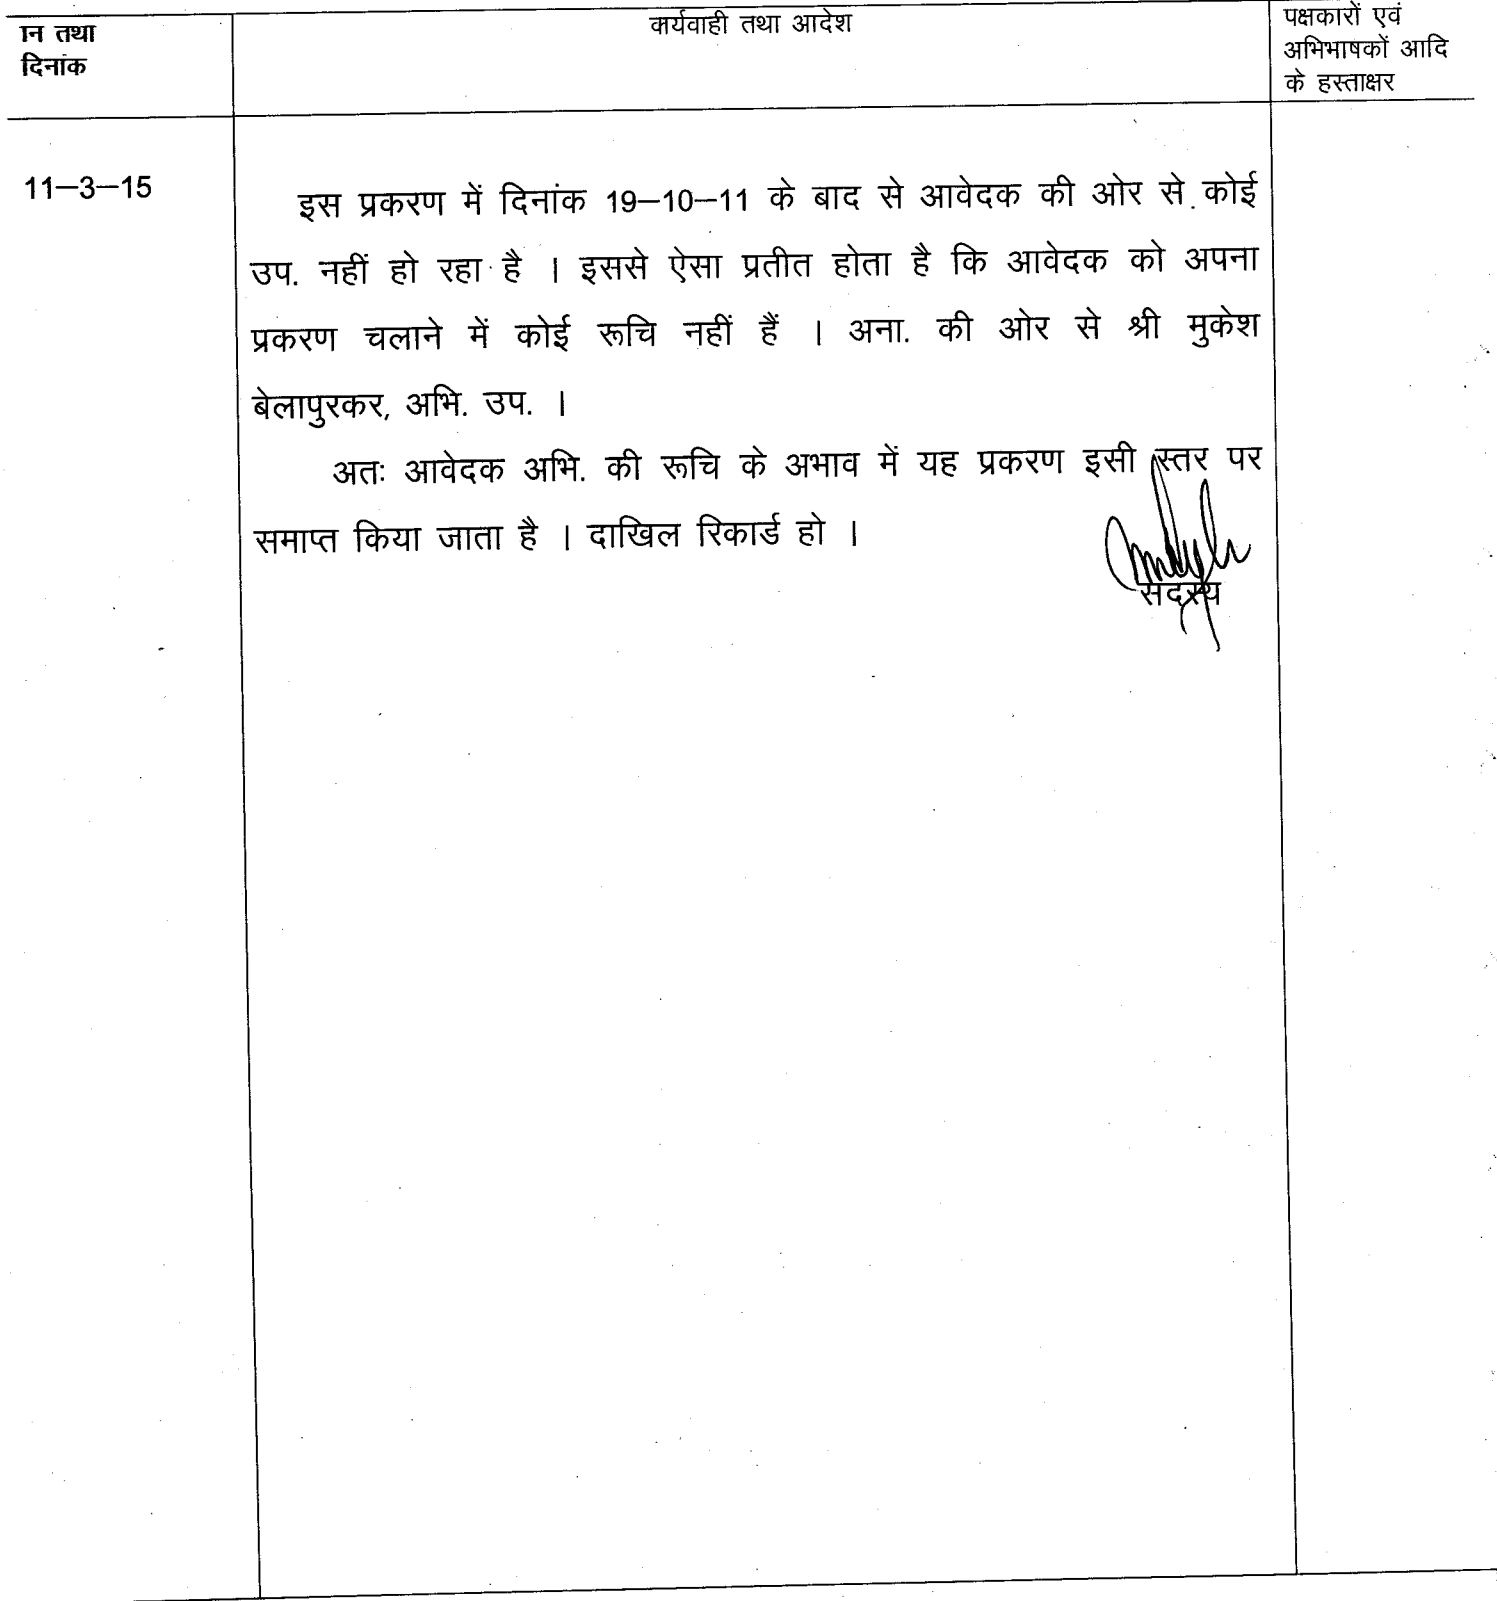 तथा
दिनांक
कार्यवाही तथा आदेश
पक्षकारों एवं
अभिभाषकों आदि
के हस्ताक्षर
11–3–15
इस प्रकरण में दिनांक 19–10–11 के बाद से आवेदक की ओर से कोई
उप. नहीं हो रहा है । इससे ऐसा प्रतीत होता है कि आवेदक को अपना
प्रकरण चलाने में कोई रूचि नहीं हैं । अना. की ओर से श्री मुकेश
बेलापुरकर, अभि. उप. ।
अतः आवेदक अभि. की रूचि के अभाव में यह प्रकरण इसी स्तर पर
समाप्त किया जाता है । दाखिल रिकार्ड हो ।
सदस्य